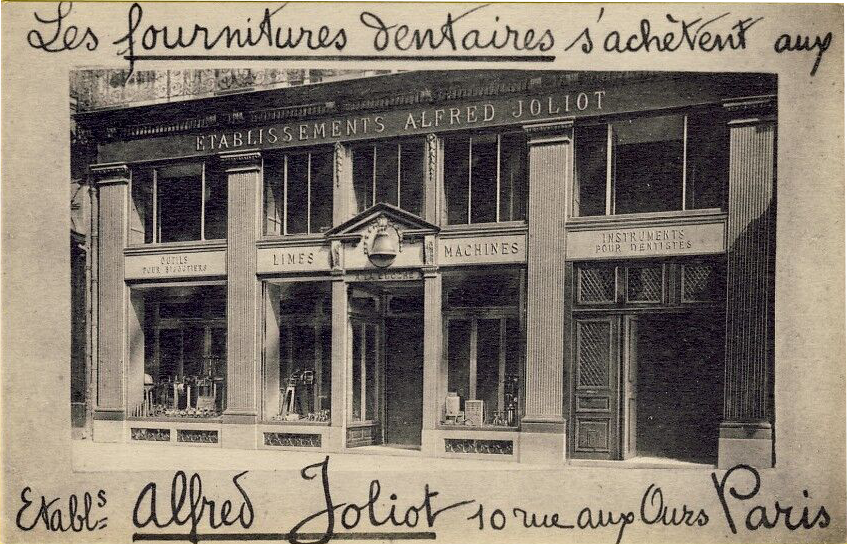 Les fournitures dentaires s'achètent aux
ETABLISSEMENTS ALFRED JOLIOT
OUTILS
POUR BIJOUTIERS
LIMES
MACHINES
INSTRUMENTS
POUR DENTISTES
A LA CLOCHE
Etabls Alfred Joliot 10 rue aux Ours Paris